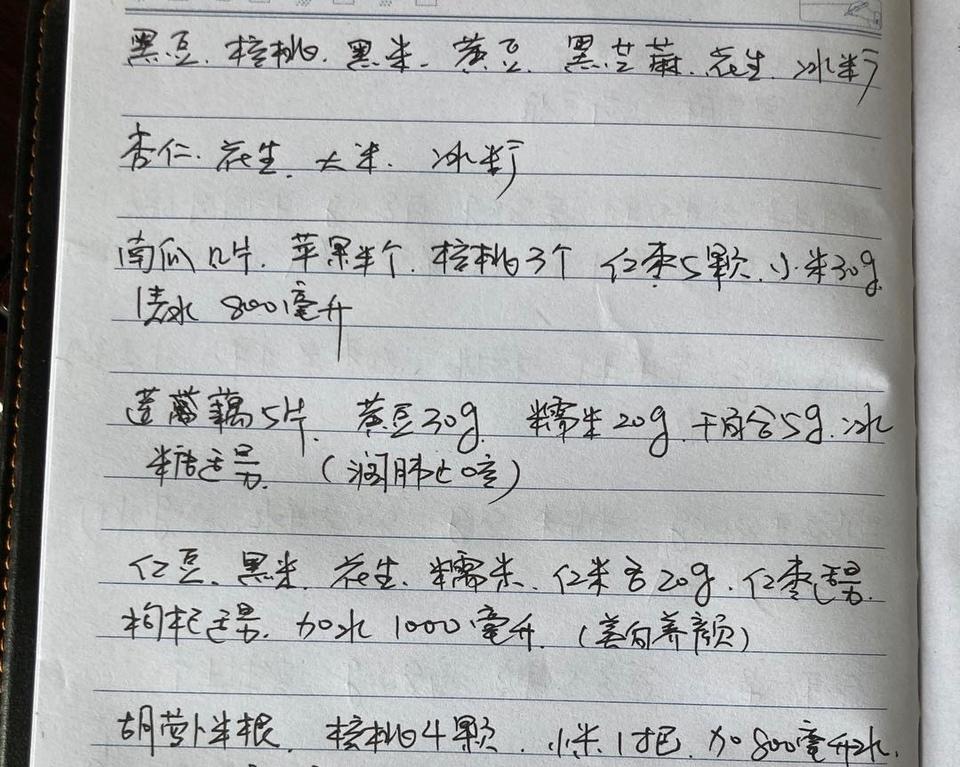 黑豆. 核桃. 黑米. 黄豆. 黑芝麻. 花生. 冰糖
杏仁. 花生. 大米. 冰糖
南瓜几片. 苹果半个. 核桃3个 红枣5颗. 小米30g.
清水 800毫升
莲藕5片. 黄豆30g. 糯米20g. 干百合5g. 冰
糖适量. (润肺止咳)
红豆. 黑米. 花生. 糯米. 红米各20g. 红枣适量.
枸杞适量. 加水 1000毫升. (美白养颜)
胡萝卜半根. 核桃4颗. 小米1把. 加800毫升水.